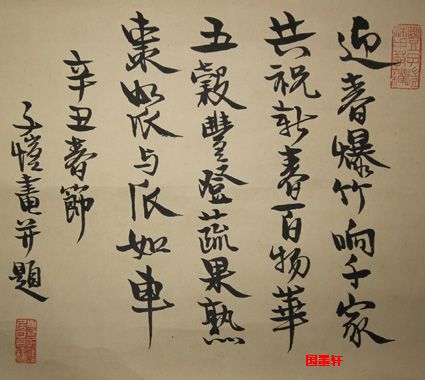 迎春爆竹响千家
共祝新春百物華
五穀豐登蔬果熟
棗如瓜与瓜如車
辛丑春節
子愷畫并題
国墨轩